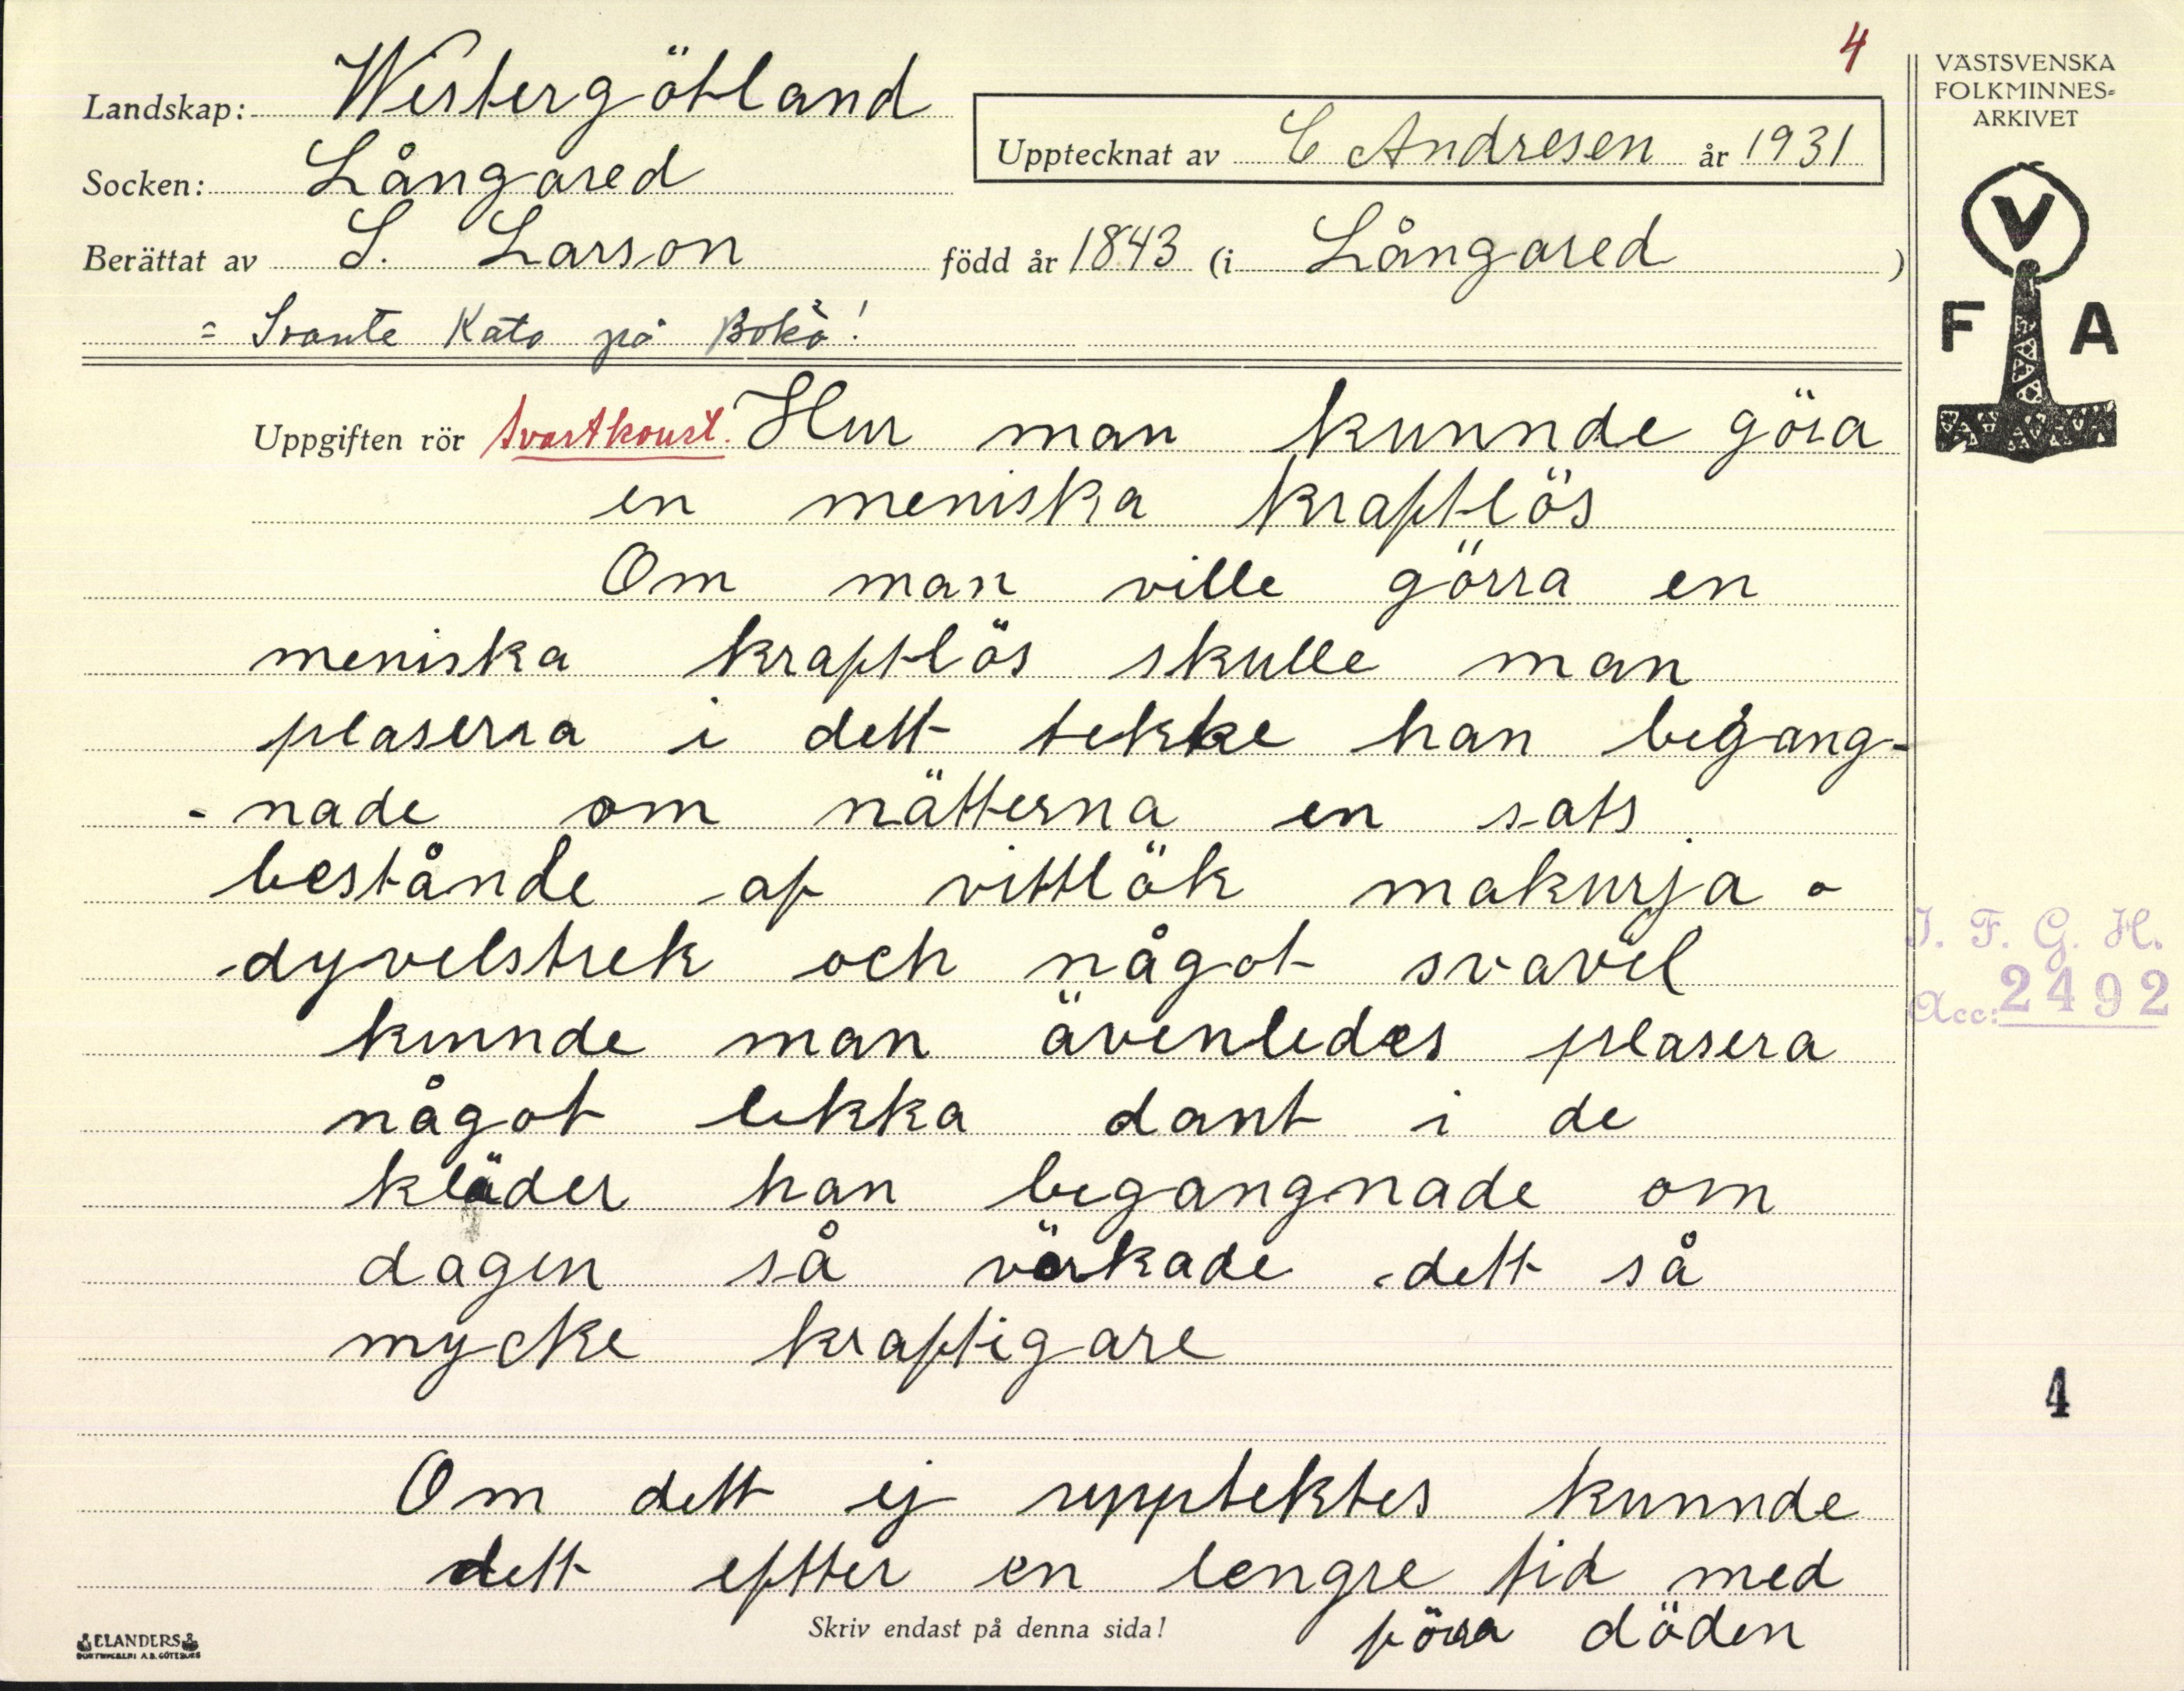 4
Landskap: Westergötland
Socken: Långared
Upptecknat av C Andresen år 1931
Berättat av S. Larson född år 1843 (i Långared)
= Svante Kato på Bokö!
VÄSTSVENSKA
FOLKMINNES-
ARKIVET
V
F A
Uppgiften rör svartkonst. Hur man kunnde göra
en meniska kraftlös
Om man ville görra en
meniska kraftlös skulle man
plaserra i dett tekke han begang-
-nade om nätterna en sats
bestånde af vittlök makurja o
dyvelstrek och något svavel
kunnde man ävenledes plasera
något likka dant i de
kläder han begangnade om
dagen så värkade dett så
mycke kraftigare
Om dett ej upptektes kunnde
dett eftter en lengre tid med
föra döden
I. F. G. H.
Acc: 2492
4
Skriv endast på denna sida!
ELANDERS
BOKTRYCKERI A.B. GÖTEBORG